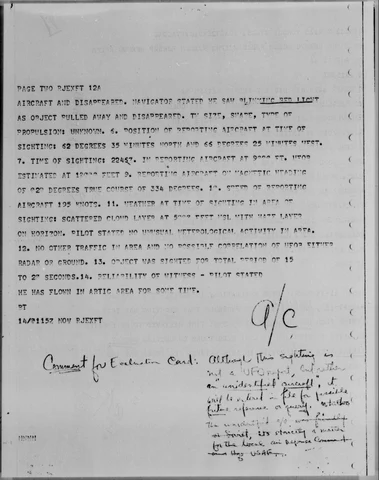 PAGE TWO RJEXFT 12A
AIRCRAFT AND DISAPPEARED. NAVIGATOR STATED HE SAW BLINKING RED LIGHT
AS OBJECT PULLED AWAY AND DISAPPEARED. SIZE, SHAPE, TYPE OF
PROPULSION: UNKNOWN. 6. POSITION OF REPORTING AIRCRAFT AT TIME OF
SIGHTING: 62 DEGREES 35 MINUTES NORTH AND 66 DEGREES 25 MINUTES WEST.
7. TIME OF SIGHTING: IN REPORTING AIRCRAFT AT FEET. UFOB
ESTIMATED AT FEET 9. REPORTING AIRCRAFT ON MAGNETIC HEADING
OF DEGREES TRUE COURSE OF 334 DEGREES. SPEED OF REPORTING
AIRCRAFT 195 KNOTS. 11. WEATHER AT TIME OF SIGHTING IN AREA OF
SIGHTING: SCATTERED CLOUD LAYER AT FEET MSL WITH HAZE LAYER
ON HORIZON. PILOT STATED NO UNUSUAL METEROLOGICAL ACTIVITY IN AREA.
12. NO OTHER TRAFFIC IN AREA AND NO POSSIBLE CORRELATION OF UFOB EITHER
RADAR OR GROUND. 13. OBJECT WAS SIGHTED FOR TOTAL PERIOD OF 15
TO SECONDS.14. RELIABILITY OF WITNESS - PILOT STATED
HE HAS FLOWN IN ARTIC AREA FOR SOME TIME.
BT
14/0115Z NOV RJEXFT
A/C
Comment for Evaluation Card: Although this sighting is
not a UFO report, but rather
an "unidentified aircraft", it
in file for possible
future reference or query.
the unidentified a/c was friendly
or Soviet, is strictly a matter
for the local air defense command